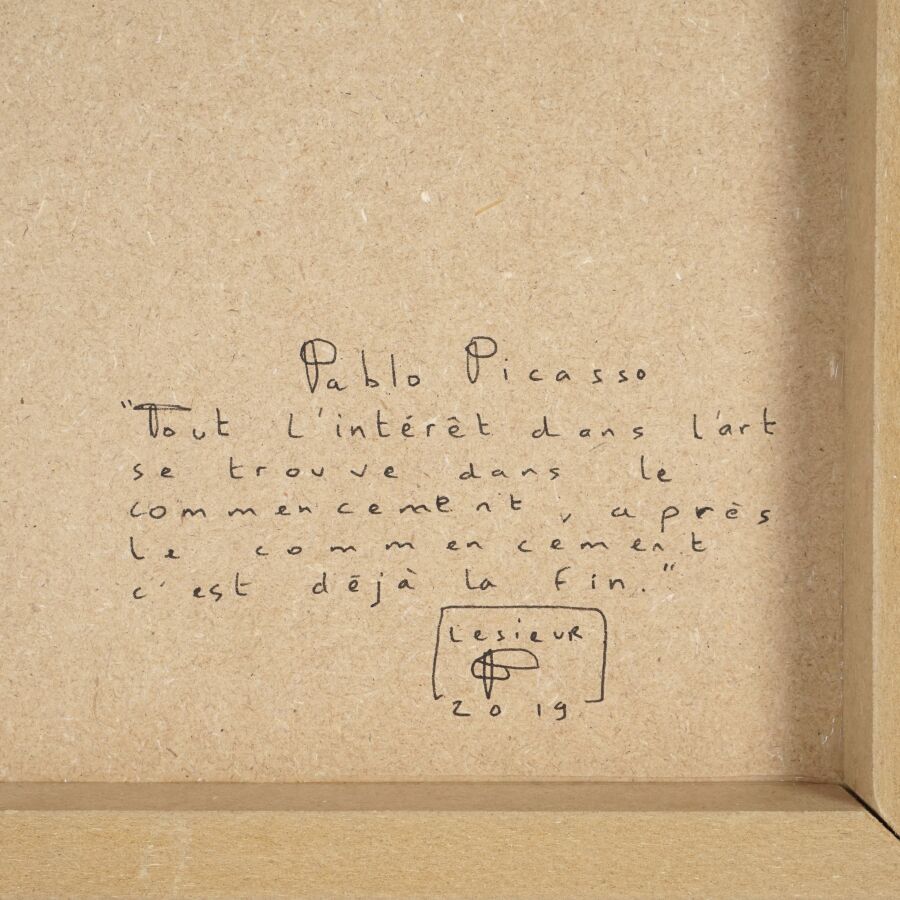 Pablo Picasso
"Tout l'intérêt dans l'art
se trouve dans le
commencement, après
le commencement
c'est déjà la fin."
LesieuR
2019